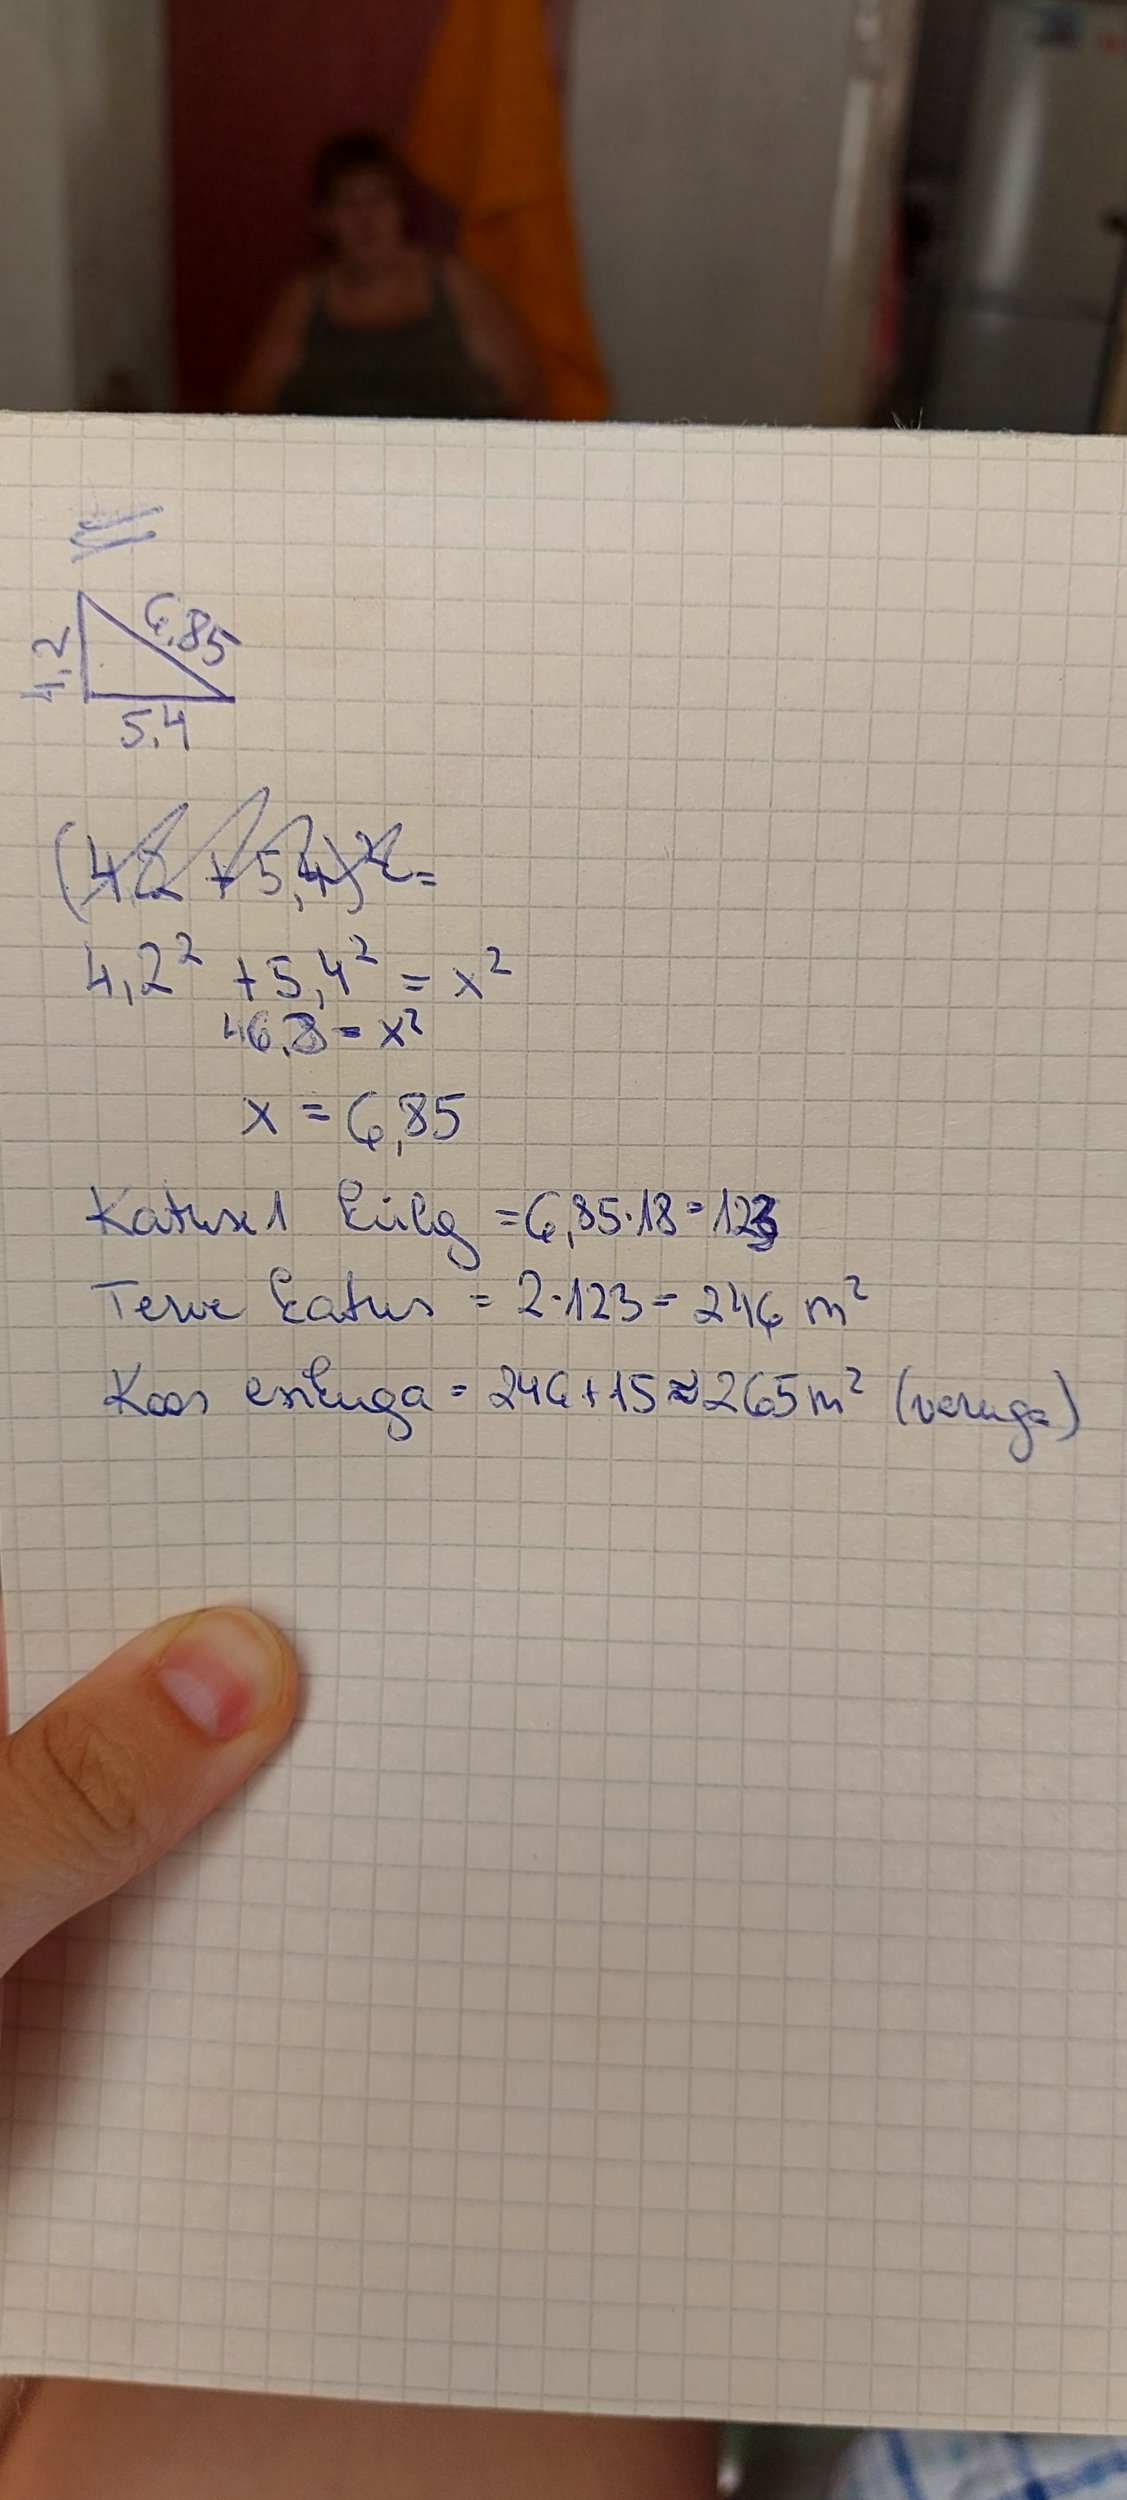 4,2
6,85
5,4
(4,2 + 5,4)² =
4,2² + 5,4² = x²
46,8 = x²
x = 6,85
Katuse 1 külg = 6,85·18 = 123
Terve katus = 2·123 = 246 m²
Koos esikuga = 246 + 15 ≈ 265 m² (varuga)